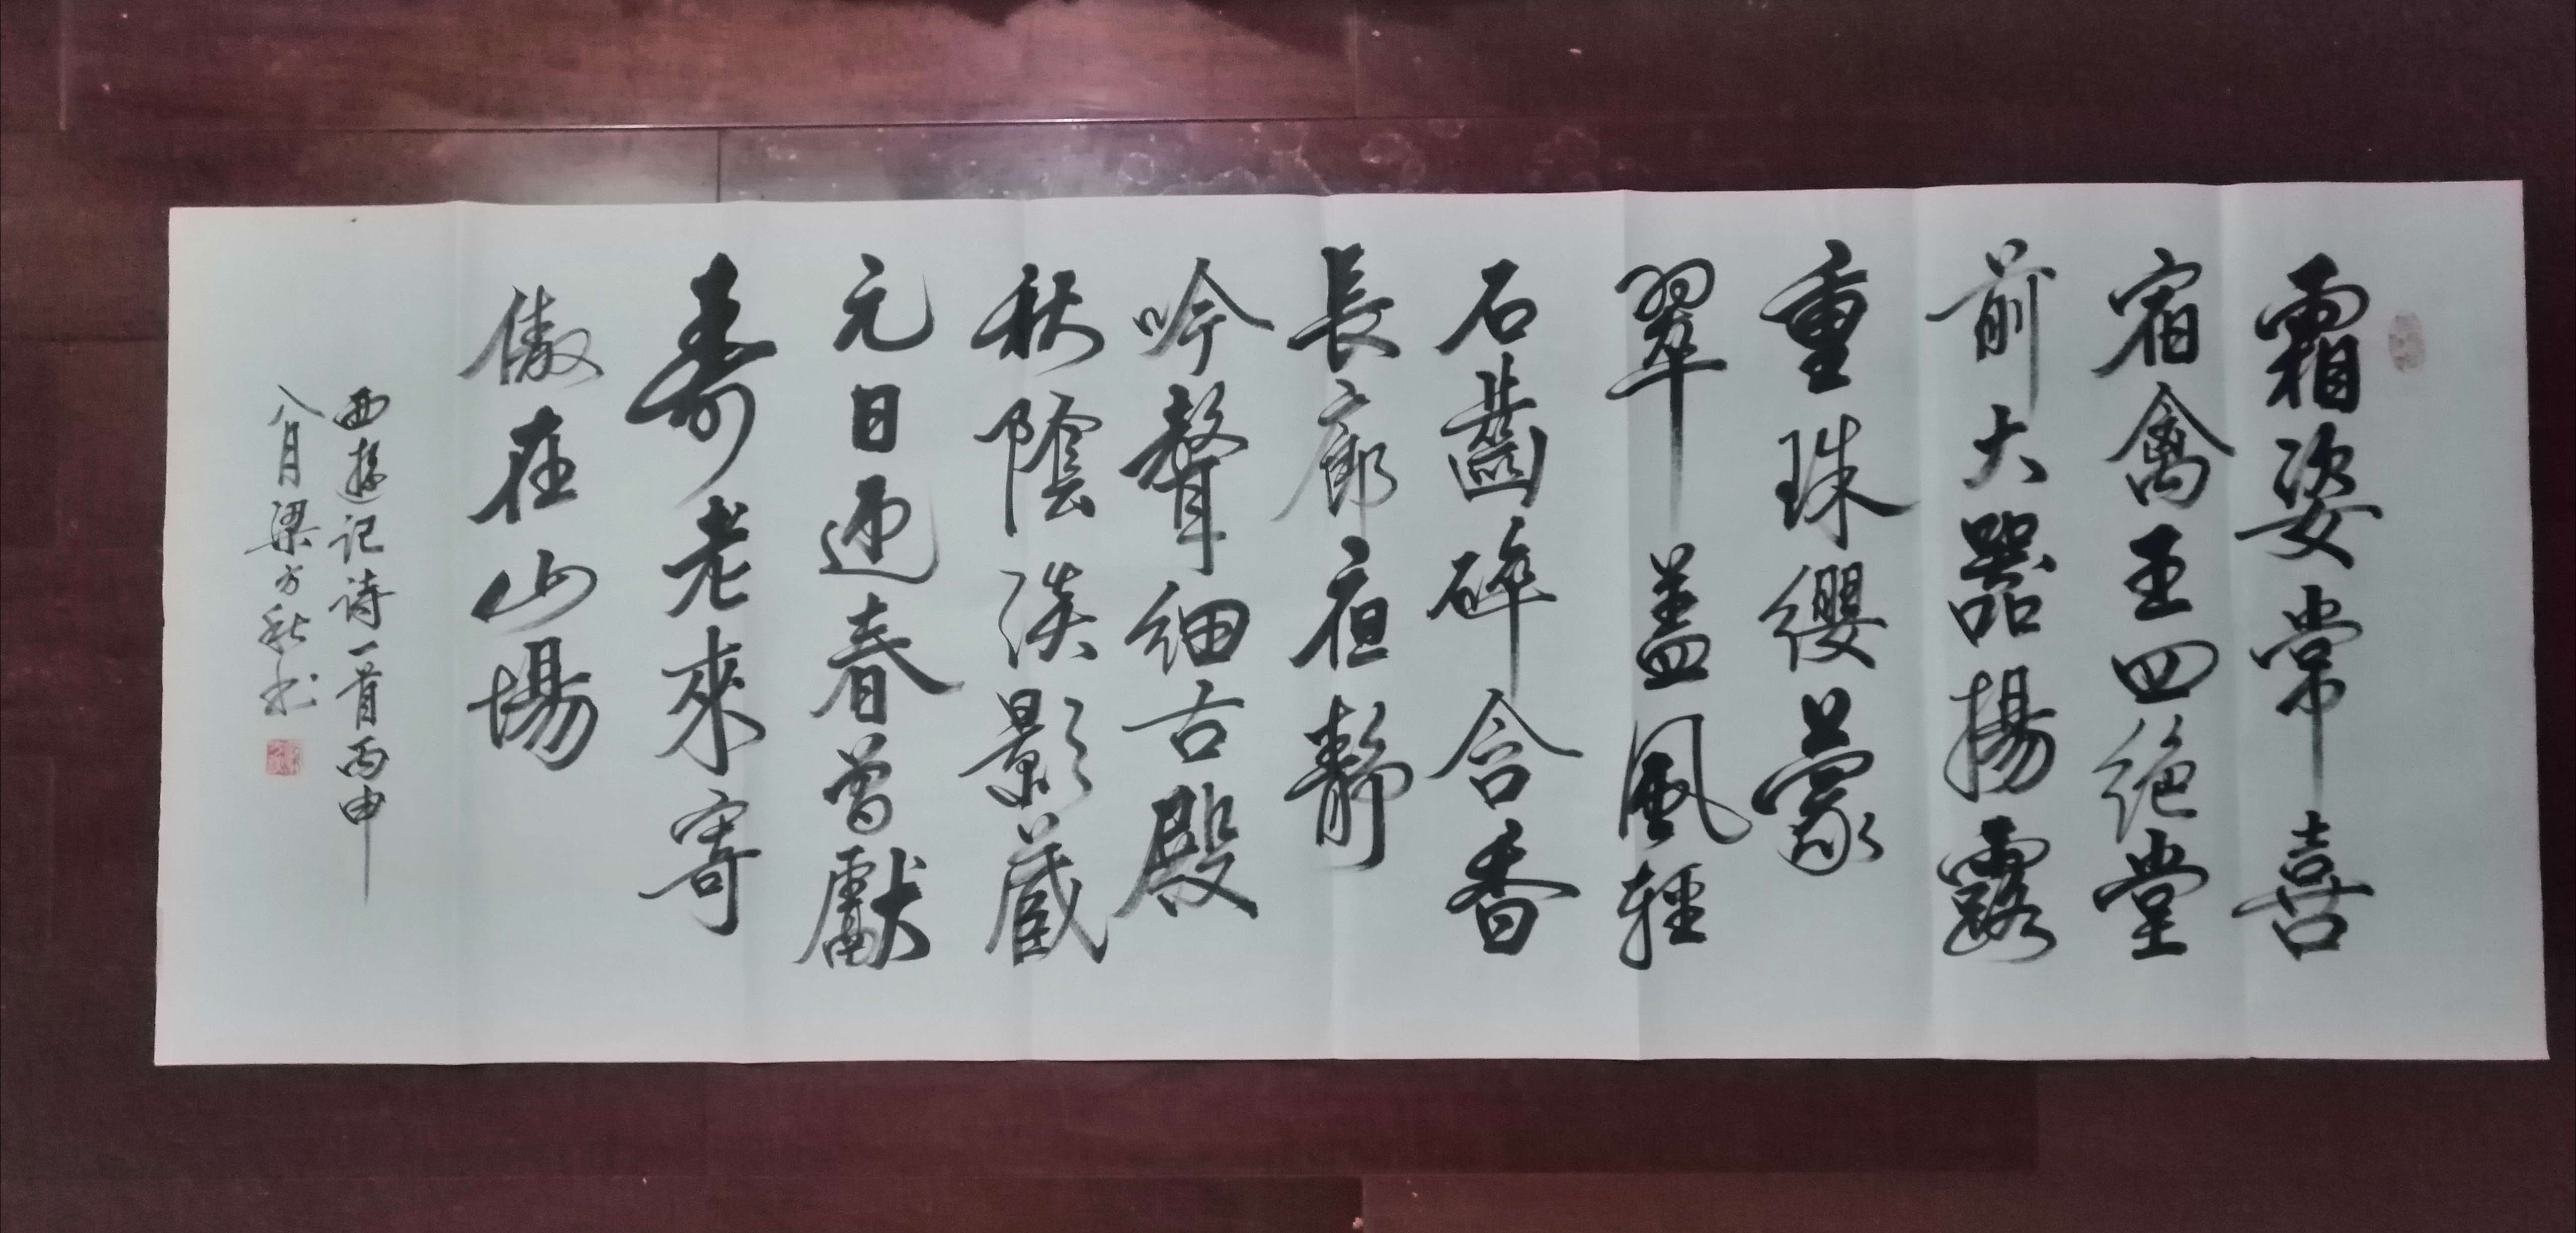 霜姿常喜
宿禽王四绝堂
前大器揚露
重珠纓蒙
翠盖風輕
石齒碎含香
長廊夜静
吟聲细古殿
秋陰淡影蔵
元日迎春曾獻
壽老來寄
傲在山場
西遊记诗一首丙申
八月梁方秋书